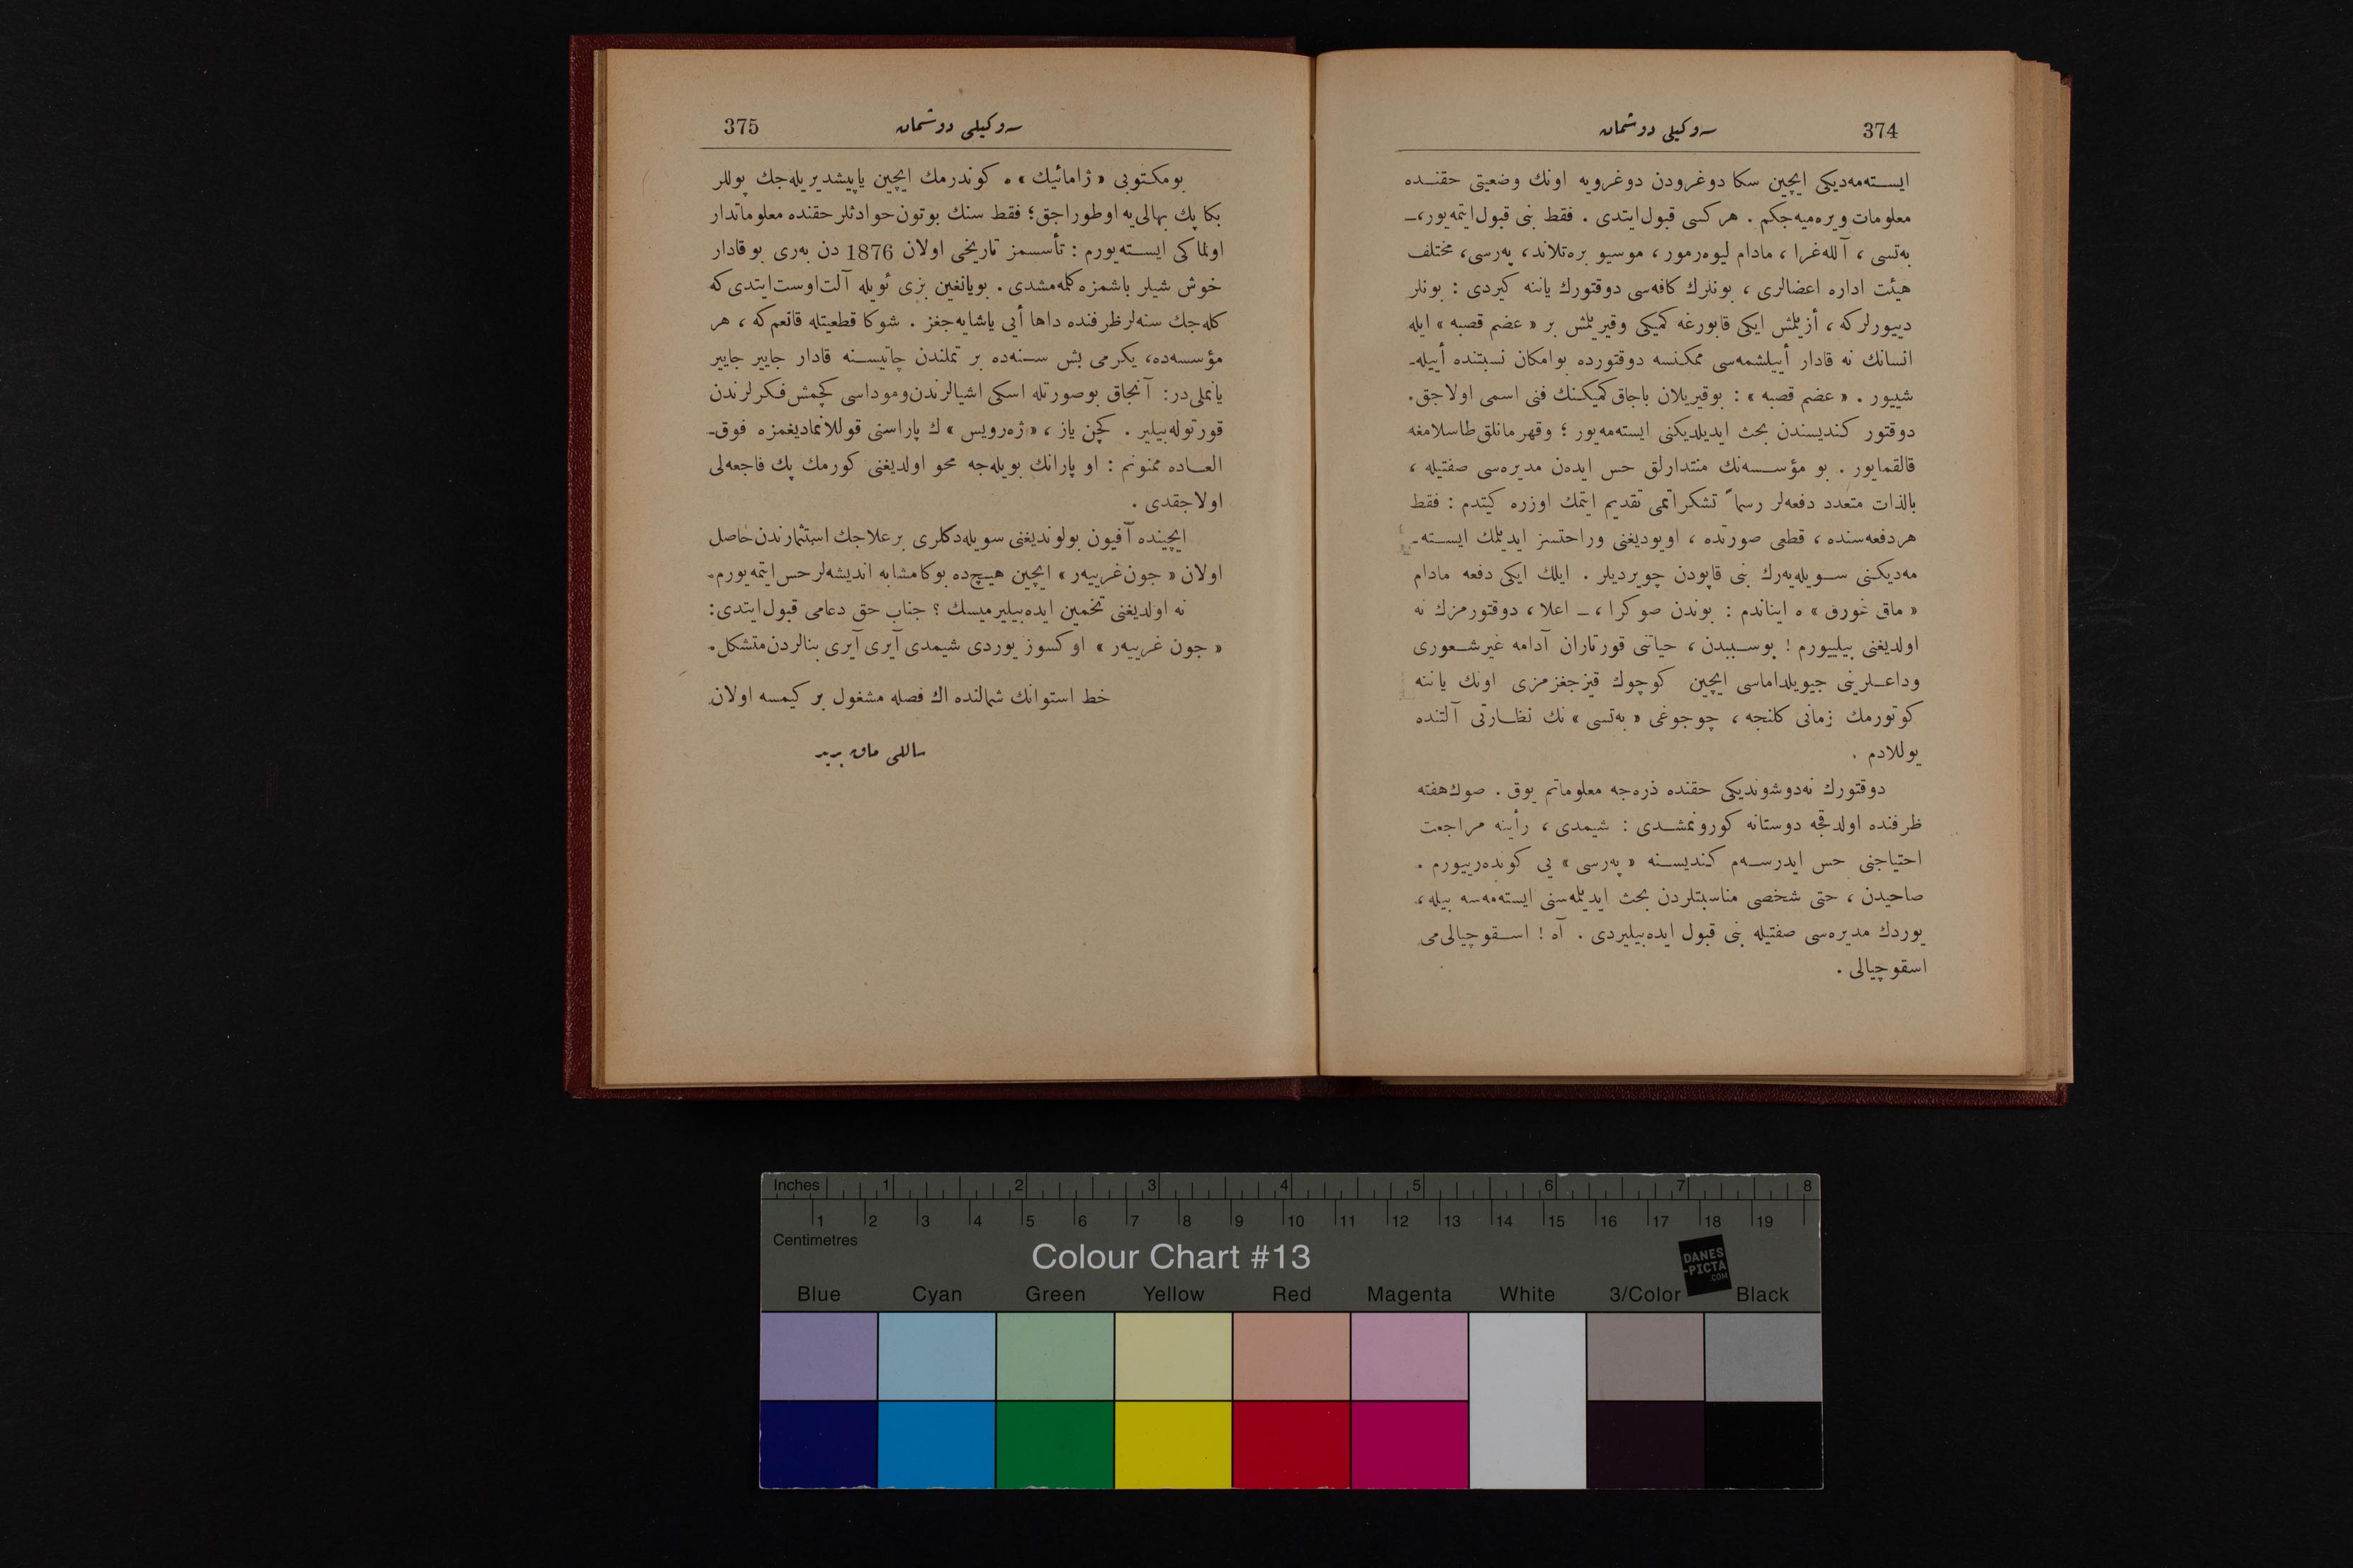 374
سه‌وکیلی دوشمان
ایسته‌مه‌دیکی ایچین سکا دوغرودن دوغرویه اونك وضعیتی حقنده
معلومات ویره‌میه‌جکم . هرکسی قبول ایتدی . فقط بنی قبول ایتمه‌یور، ـ
به‌تسی ، آلله‌غرا ، مادام لیوه‌رمور ، موسیو بره‌تلاند ، په‌رسی ، مختلف
هیئت اداره اعضالری ، بونلرك کافه‌سی دوقتورك یاننه کیردی : بونلر
دییورلرکه ، أزیلمش ایکی قابورغه کمیکی وقیریلمش بر « عضم قصبه » ایله
انسانك نه قادار أییلشمه‌سی ممکنسه دوقتورده بوامکان نسبتنده أییله‌ـ
شییور . « عضم قصبه » : بوقیریلان باجاق کمیکنك فنی اسمی اولاجق .
دوقتور کندیسندن بحث ایدیلدیکنی ایسته‌مه‌یور ؛ وقهرمانلق طاسلامغه
قالقمایور . بو مؤسسه‌نك منتدارلق حس ایده‌ن مدیره‌سی صفتیله ،
بالذات متعدد دفعه‌لر رسماً تشکراتمی تقدیم ایتمك اوزره کیتدم : فقط
هردفعه‌سنده ، قطعی صورتده ، اویودیغنی وراحتسز ایدیلمك ایسته‌ـ
مه‌دیکنی سویله‌یه‌رك بنی قاپودن چویردیلر . ایلك ایکی دفعه مادام
« ماق غورق » ه ایناندم : بوندن صوکرا ، ـ اعلا ، دوقتورمزك نه
اولدیغنی بیلییورم ! بوسببدن ، حیاتنی قورتاران آدامه غیرشعوری
وداعلرینی جیویلداماسی ایچین کوچوك قیزجغزمزی اونك یاننه
کوتورمك زمانی کلنجه ، چوجوغی « به‌تسی » نك نظارتی آلتنده
یوللادم .
دوقتورك نه‌دوشوندیکی حقنده ذره‌جه معلوماتم یوق . صوك هفته
ظرفنده اولدقجه دوستانه کورونمشدی : شیمدی ، رأینه مراجعت
احتیاجنی حس ایدرسه‌م کندیسنه « په‌رسی » یی کونده‌رییورم .
صاحیدن ، حتی شخصی مناسبتلردن بحث ایدیلمه‌سنی ایسته‌مه‌سه بیله ،
یوردك مدیره‌سی صفتیله بنی قبول ایده‌بیلیردی . آه ! اسقوچیالی‌می
اسقوچیالی .
375
سه‌وکیلی دوشمان
بومکتوبی « ژامائیك » ه کوندرمك ایچین یاپیشدیریله‌جك پوللر
بکا پك بهالی‌یه اوطوراجق ؛ فقط سنك بوتون حوادثلر حقنده معلوماتدار
اولماکی ایسته‌یورم : تأسسمز تاریخی اولان 1876 دن به‌ری بو قادار
خوش شیلر باشمزه کلمه‌مشدی . بویانغین بزی ئویله آلت‌اوست ایتدی‌که
کله‌جك سنه‌لر ظرفنده داها أیی یاشایه‌جغز . شوکا قطعیتله قانعم‌که ، هر
مؤسسه‌ده ، یکرمی بش سنه‌ده بر تملندن چاتیسنه قادار جاییر جاییر
یانملی‌در : آنجاق بوصورتله اسکی اشیالرندن وموداسی کچمش فکرلرندن
قورتوله‌بیلیر . کچن یاز ، « ژه‌رویس » ك پاراسنی قوللانمادیغمزه فوق‌ـ
العاده ممنونم : او پارانك بویله‌جه محو اولدیغنی کورمك پك فاجعه‌لی
اولاجقدی .
ایچینده آفیون بولوندیغنی سویله‌دکلری برعلاجك استثمارندن حاصل
اولان « جون غرییه‌ر » ایچین هیچ‌ده بوکا مشابه اندیشه‌لر حس ایتمه‌یورم .
نه اولدیغنی تخمین ایده‌بیلیرمیسك ؟ جناب حق دعامی قبول ایتدی :
« جون غرییه‌ر » اوکسوز یوردی شیمدی آیری آیری بنالردن متشکل .
خط استوانك شمالنده اك فضله مشغول بر کیمسه اولان
ساللی ماق برید
Inches 1 2 3 4 5 6 7 8
1 2 3 4 5 6 7 8 9 10 11 12 13 14 15 16 17 18 19
Centimetres
Colour Chart #13
DANES-PICTA.COM
Blue Cyan Green Yellow Red Magenta White 3/Color Black